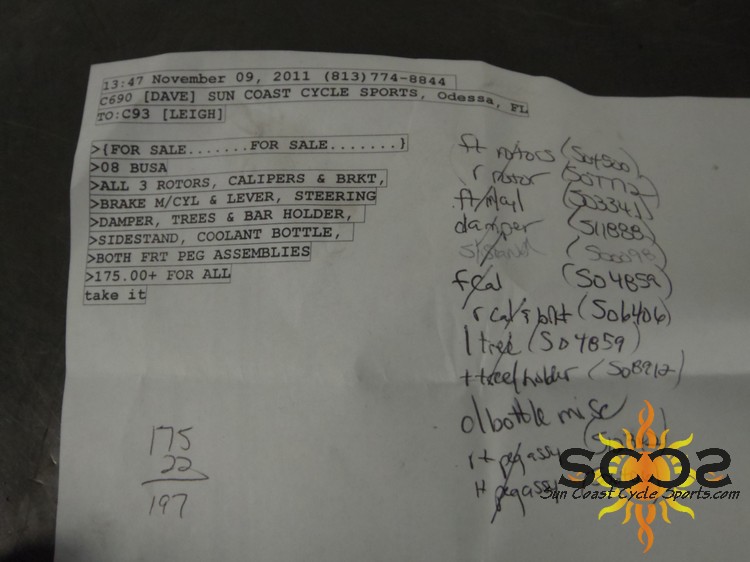 13:47 November 09, 2011 (813)774-8844
C690 [DAVE] SUN COAST CYCLE SPORTS, Odessa, FL
TO:C93 [LEIGH]
>{FOR SALE.......FOR SALE.......}
>08 BUSA
>ALL 3 ROTORS, CALIPERS & BRKT,
>BRAKE M/CYL & LEVER, STEERING
>DAMPER, TREES & BAR HOLDER,
>SIDESTAND, COOLANT BOTTLE,
>BOTH FRT PEG ASSEMBLIES
>175.00+ FOR ALL
take it
ft rotors (504500)
r rotor (507772)
ft m/cyl (503341)
damper (511888)
f cal (504859)
r cal & brkt (506406)
l tree (504859)
t tree/holder (508912)
o/bottle misc
rt peg assy
lt peg assy
175
22
197
SCCS
Sun Coast Cycle Sports.com